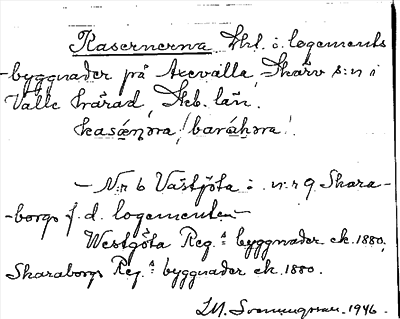 Kasernerna, Hrl. o. logements
-byggnader på Axevalla, Skärv s:n i
Valle härad, Skb. län.
kasä̱ṇəra, baráḵəra.
- N:r 6 Västjöta o. n:r 9 Skara-
-borgs f. d. logementen -
Westgöta Reg:s byggnader ek. 1880,
Skaraborgs Reg:s byggnader ek. 1880.
1946.